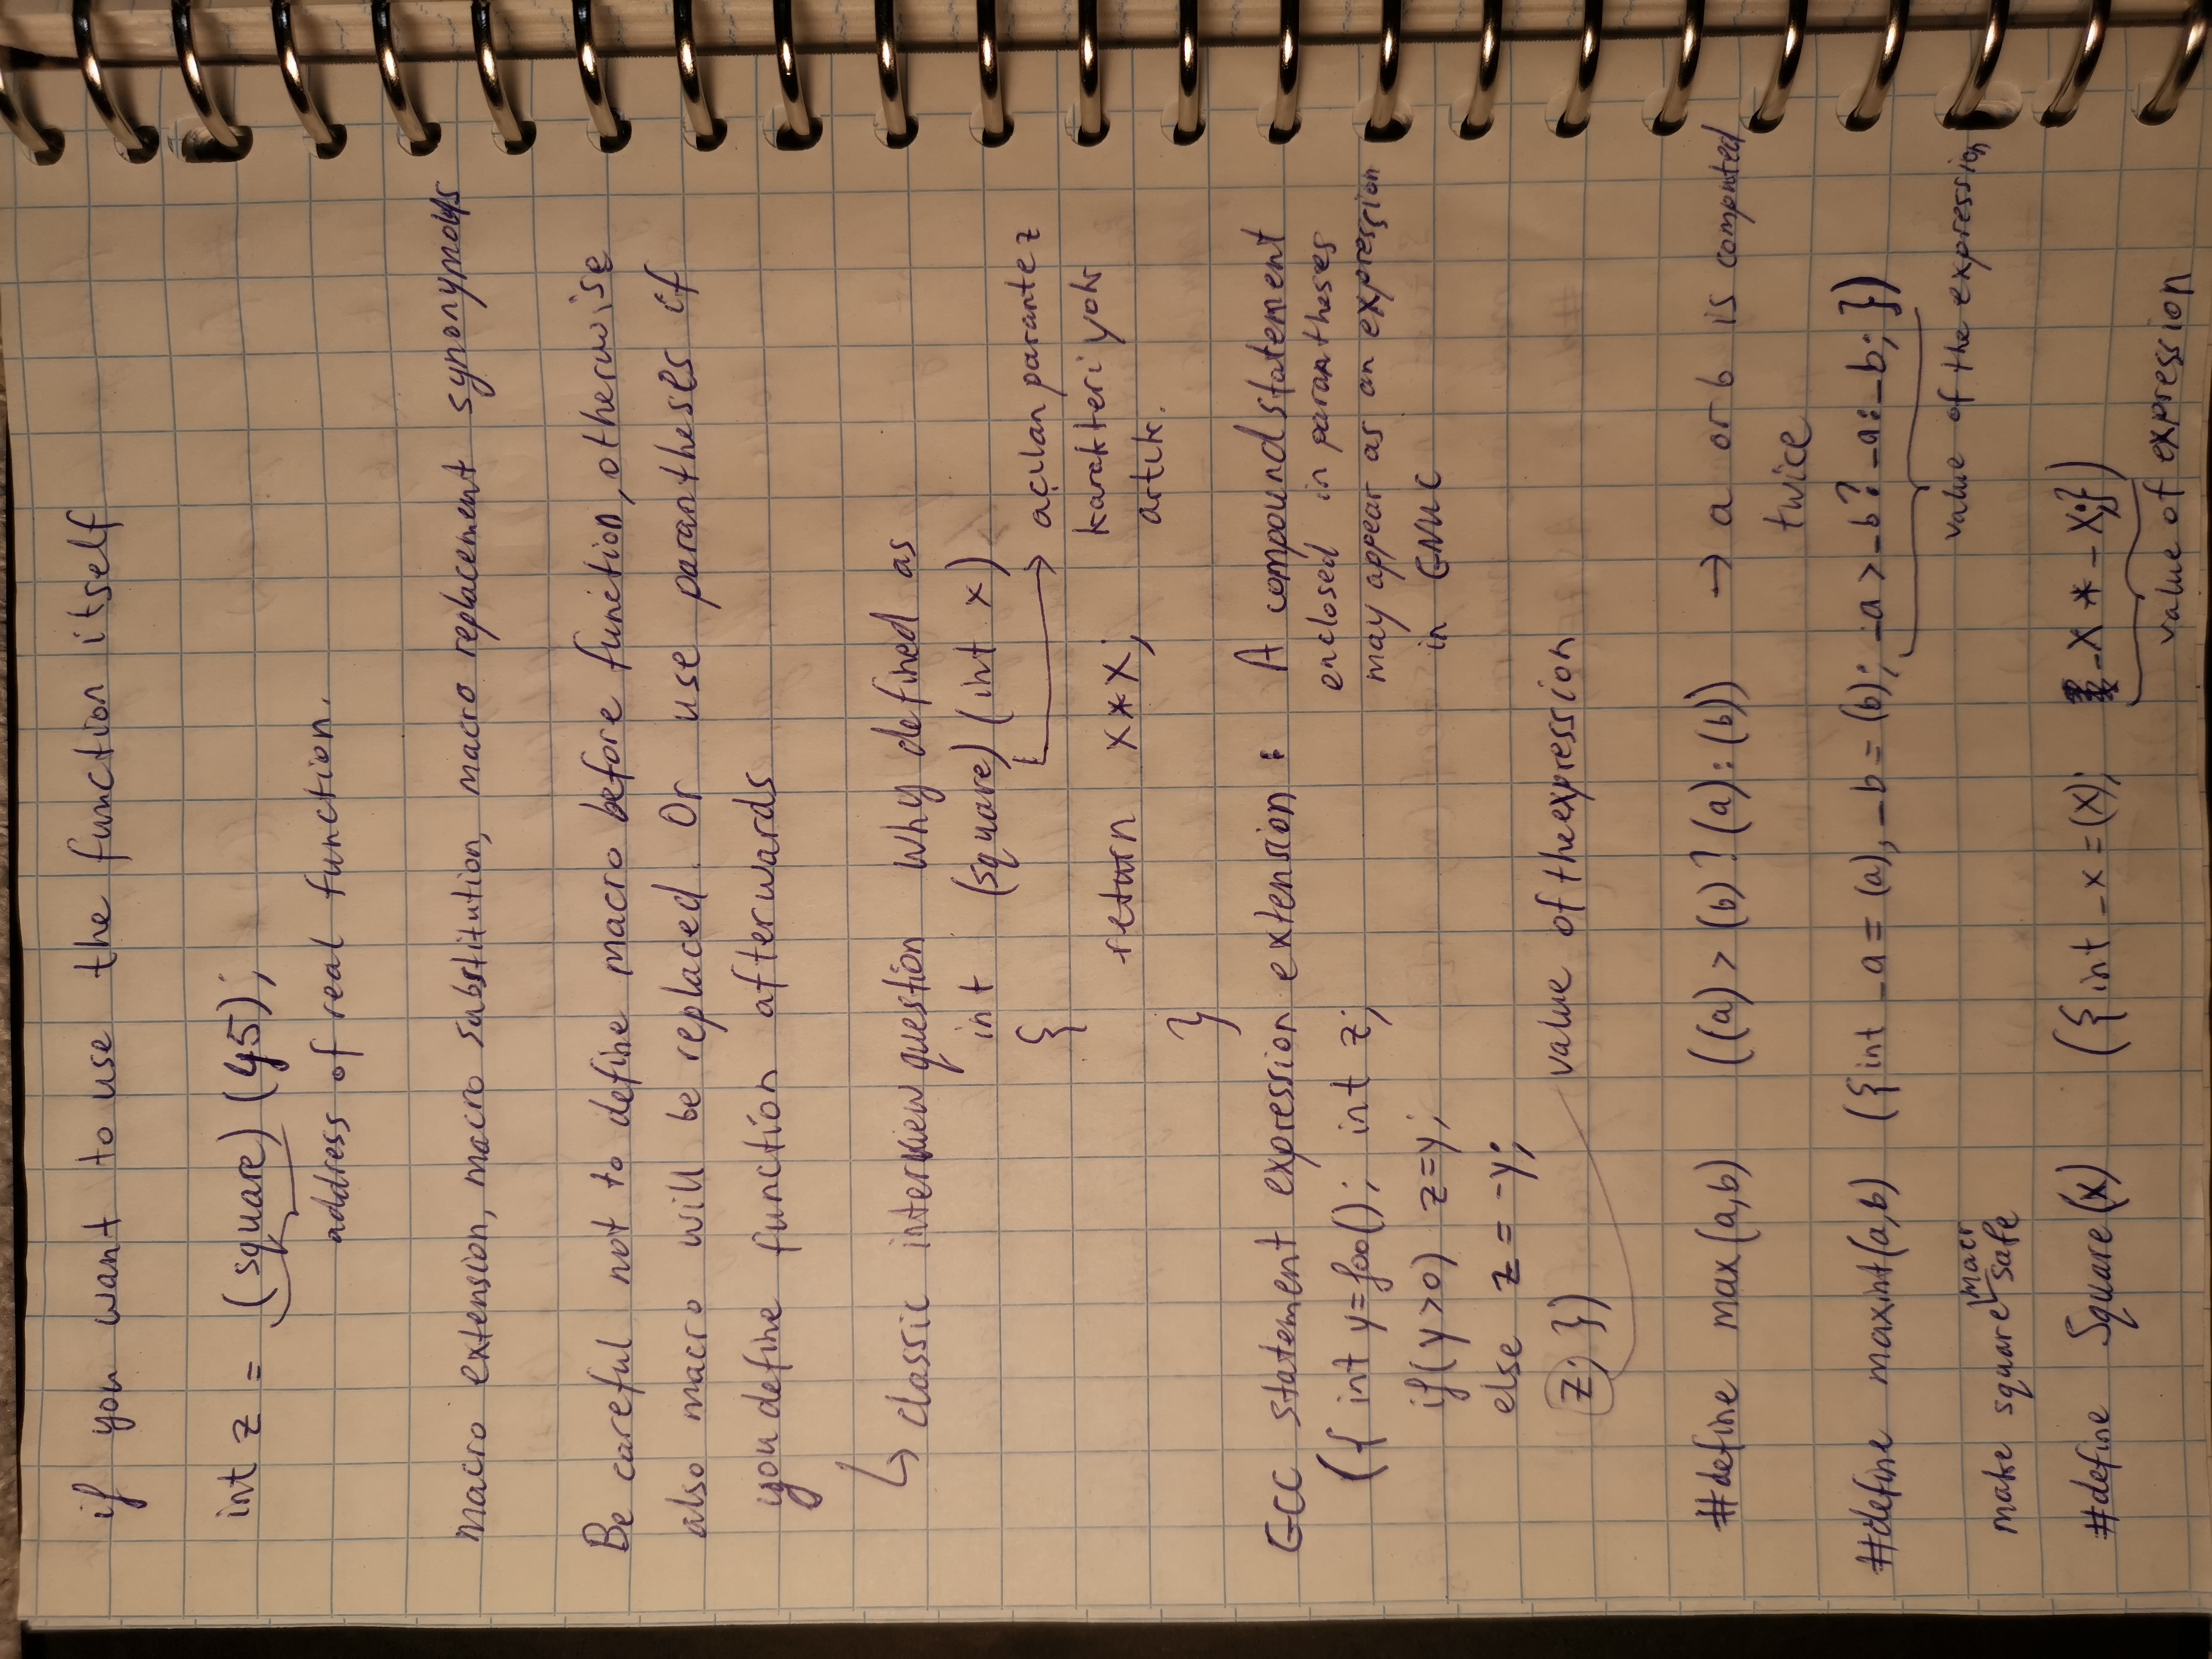 if you want to use the function itself
int z = (square) (45);
address of real function.
macro extension, macro substitution, macro replacement synonymous
Be careful not to define macro before function, otherwise
also macro will be replaced. Or use parantheses if
you define function afterwards
↳ classic interview question Why defined as
int (square) (int x)
{
→ açılan parantez
karakteri yok
return x*x;
artık.
}
GCC statement expression extension : A compound statement
enclosed in parantheses
({ int y=foo(); int z;
may appear as an expression
if(y>0) z=y;
in GNU C
else z = -y;
z; })
value of the expression
#define max(a,b) ((a) > (b) ? (a) : (b)) → a or b is computed
twice
#define maxint(a,b) ({int _a = (a), _b = (b); _a > _b ? _a : _b; })
value of the expression
macr
make square safe
#define Square(x) ({int _x = (x); _x * _x;})
value of expression